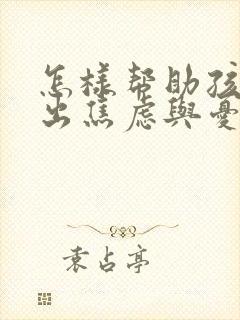 怎樣帮助孩
出焦虑與憂
袁占亭